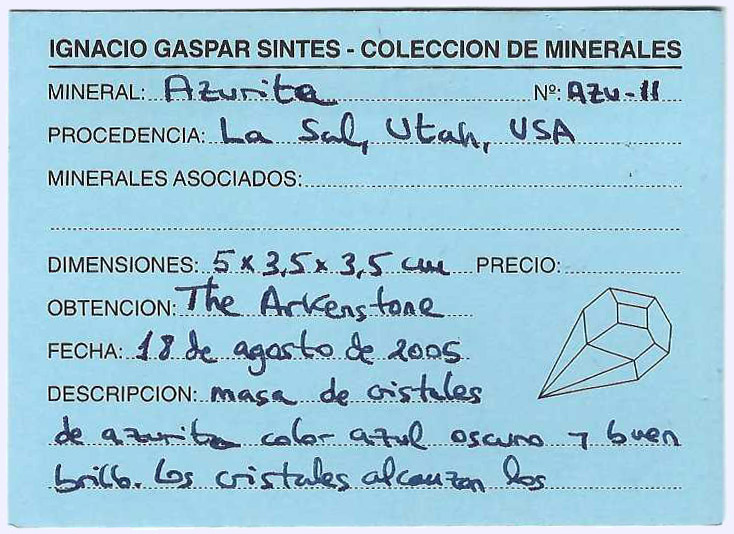 IGNACIO GASPAR SINTES - COLECCION DE MINERALES
MINERAL: Azurita Nº: AZU-11
PROCEDENCIA: La Sal, Utah, USA
MINERALES ASOCIADOS:
DIMENSIONES: 5 x 3,5 x 3,5 cm PRECIO:
OBTENCION: The Arkenstone
FECHA: 18 de agosto de 2005
DESCRIPCION: masa de cristales
de azurita color azul oscuro y buen
brillo. Los cristales alcanzan los